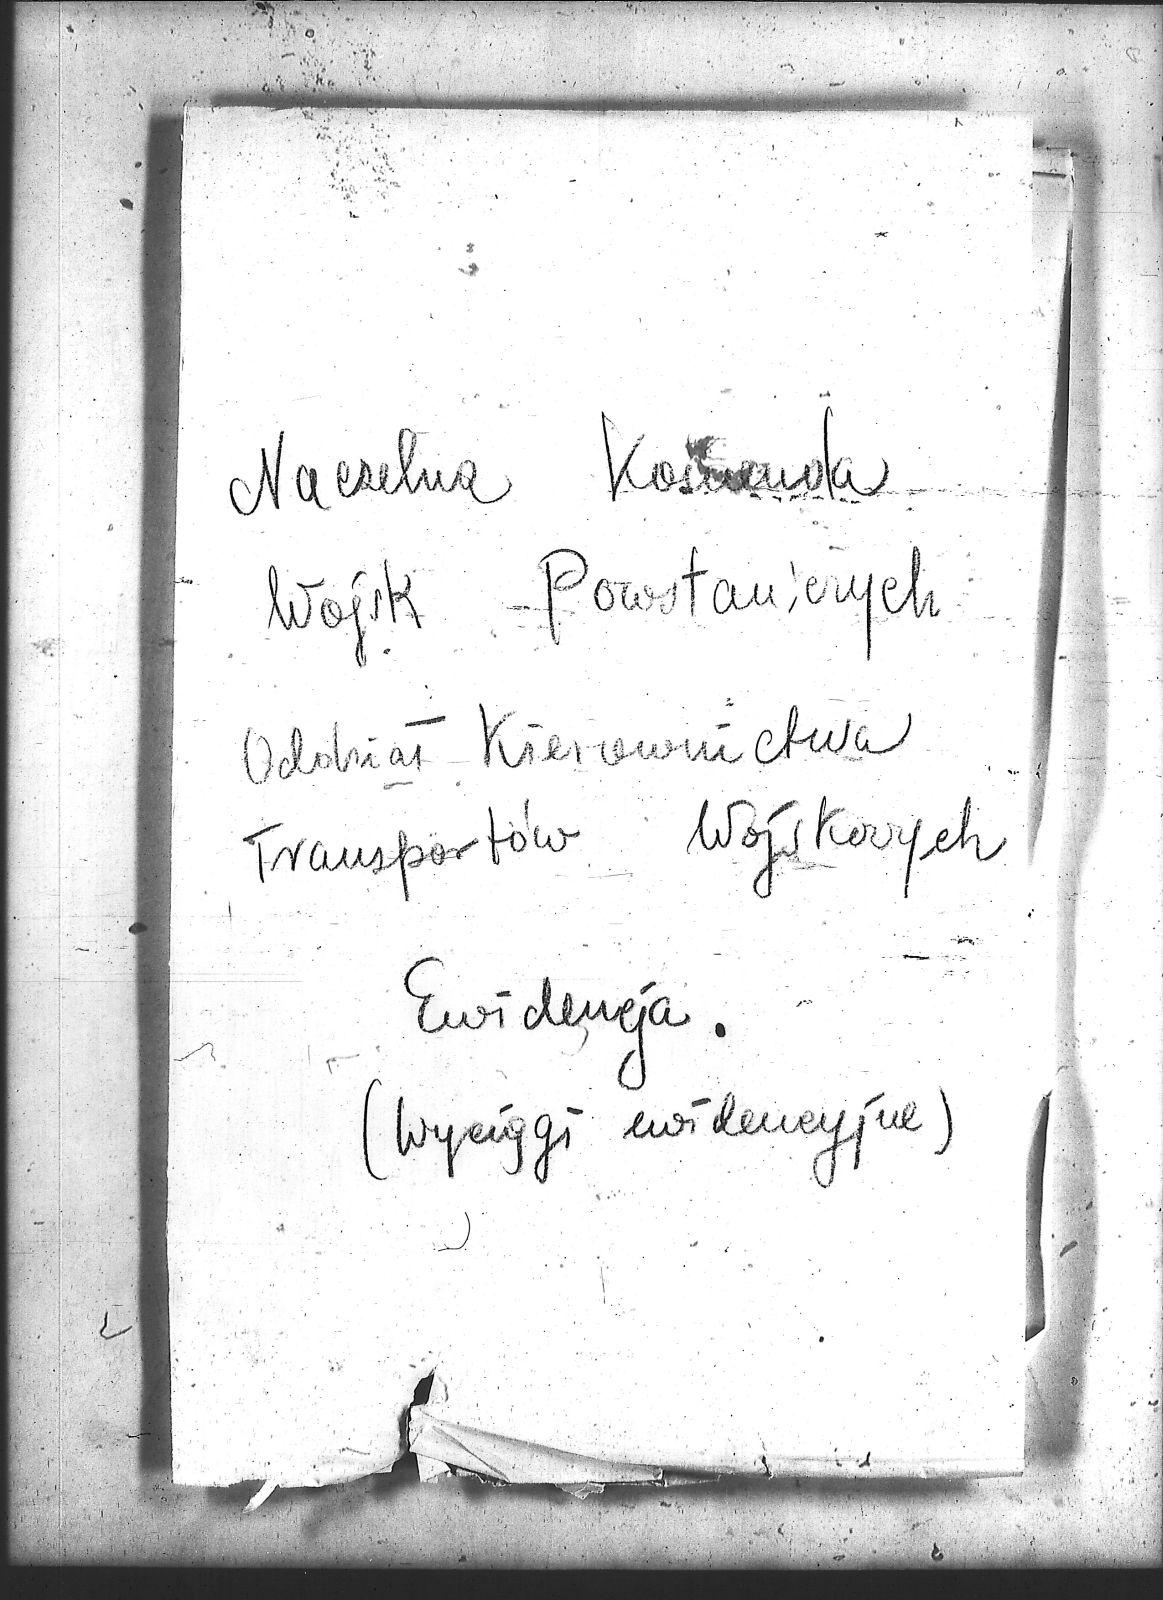 Naczelna Komenda
Wojsk Powstańczych
Oddział Kierownictwa
Transportów Wojskowych
Ewidencja.
(Wyciągi ewidencyjne)